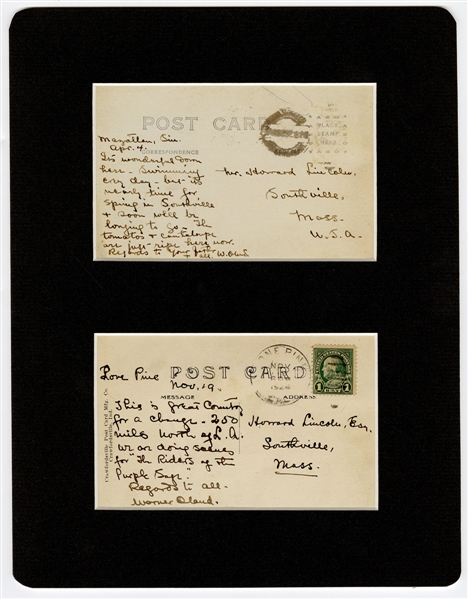 POST CARD
Mazatlan, Sin.
Apr. 4.
CORRESPONDENCE
It's wonderful down
here - Swimming
every day - but it's
nearly time for
spring in Southville
+ soon will be
longing to go - The
tomatos + cantelope
are just ripe here now.
Regards to your
+ all. W. Oland
PLACE
STAMP
HERE
Mr. Howard Lincoln,
Southville,
Mass.
U.S.A.
POST CARD
Lone Pine
Nov. 19.
MESSAGE
ADDRESS
This is Great Country
for a change - 250
miles North of L.A.
we are doing scenes
for "The Riders of the
Purple Sage."
Regards to all -
Warner Oland.
Howard Lincoln, Esq.
Southville,
Mass.
LONE PINE
NOV
1 CENT 1
Crawfordsville Post Card Mfg. Co.
Crawfordsville, Ind.